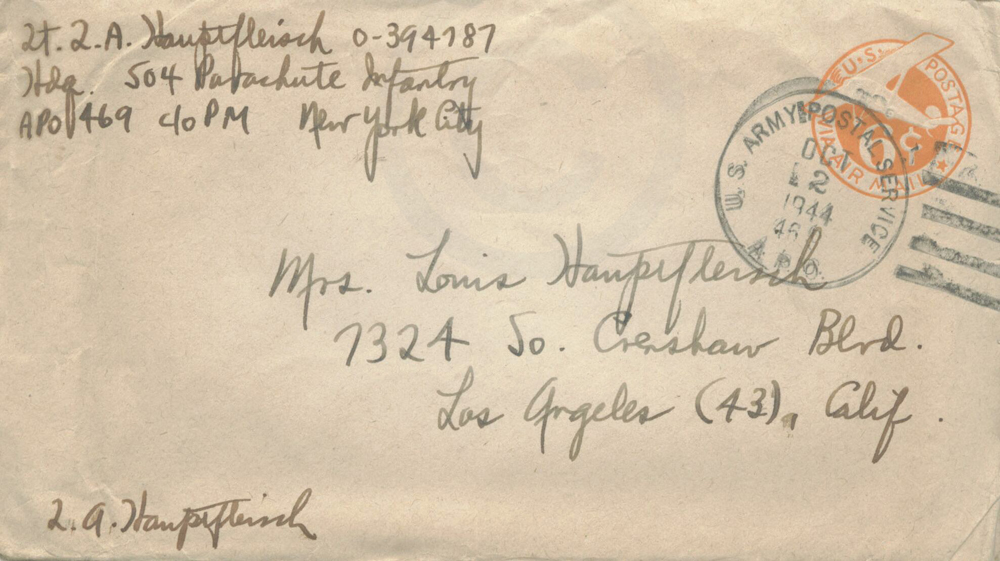 Lt. L. A. Hauptfleisch 0-394787
Hdq. 504 Parachute Infantry
APO 469 c/o PM New York City
U.S. POSTAGE
6¢
VIA AIR MAIL
U.S. ARMY POSTAL SERVICE
OCT
2
1944
A.P.O.
Mrs. Louis Hauptfleisch
7324 So. Crenshaw Blvd.
Los Angeles (43), Calif.
L. A. Hauptfleisch